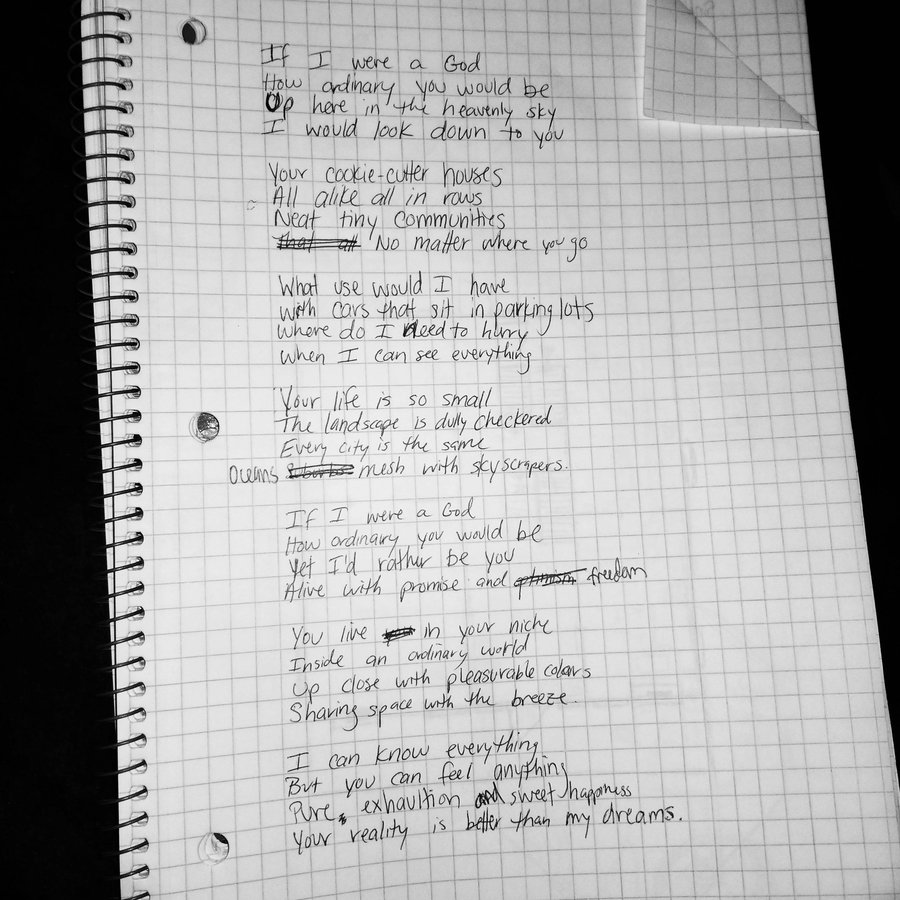 If I were a God
How ordinary you would be
Up here in the heavenly sky
I would look down to you
Your cookie-cutter houses
All alike all in rows
Neat tiny communities
that all No matter where you go
What use would I have
with cars that sit in parking lots
where do I need to hurry
when I can see everything
Your life is so small
The landscape is dully checkered
Every city is the same
Oceans suburbs mesh with skyscrapers.
If I were a God
How ordinary you would be
Yet I'd rather be you
Alive with promise and optimism freedom
You live your in your niche
Inside an ordinary world
Up close with pleasurable colours
Sharing space with the breeze.
I can know everything
But you can feel anything
Pure, exhaultion and sweet happiness
Your reality is better than my dreams.